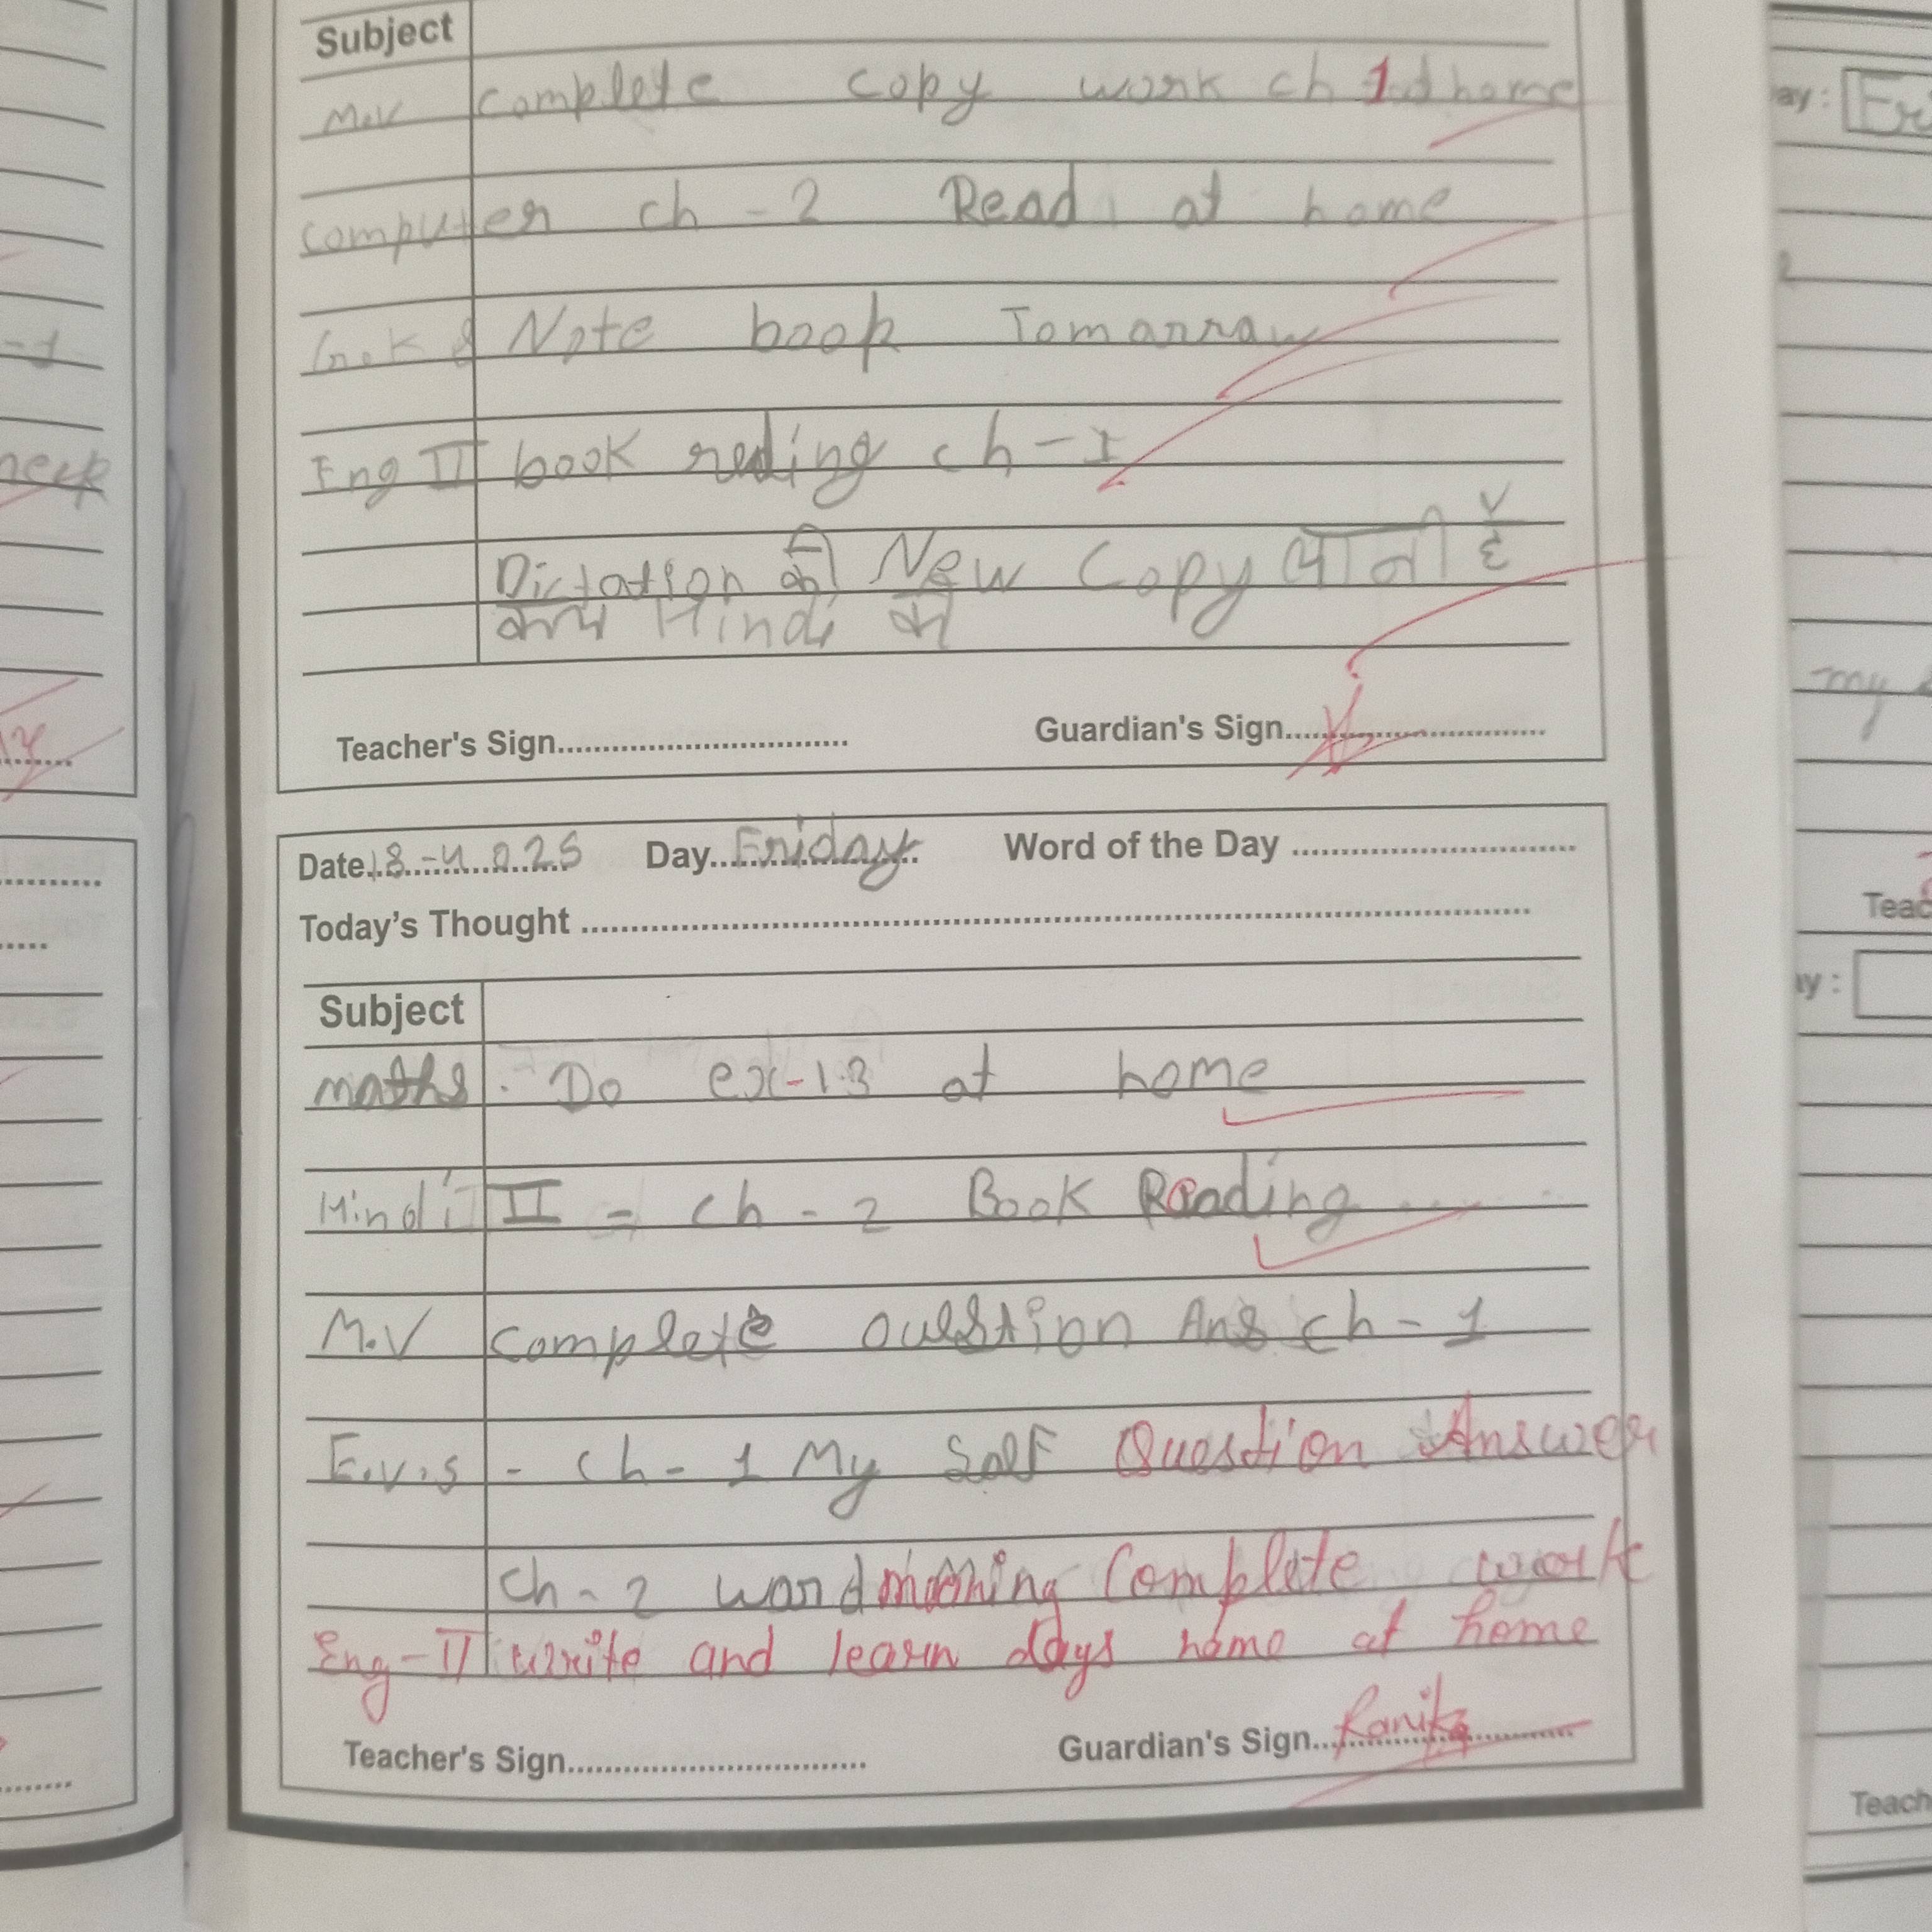 Subject
M.V complete copy work ch 1 at home
computer ch - 2 Read at home
Note book Tomarraw
Eng II book reding ch - I
Dictation की New Copy लानी है
Hindi की
Teacher's Sign..............................
Guardian's Sign..............................
Date 18-4-025 Day Friday Word of the Day ..............................
Today's Thought ..............................
Subject
maths. Do ex-1.3 at home
Hindi II = ch - 2 Book Reading
M.V complete Question Ans ch - 1
E.v.s - ch - 1 My Self Question Answer
ch - 2 word meaning Complete work
Eng-II write and learn days name at home
Teacher's Sign..............................
Guardian's Sign..............................
-1
neck
ay :
my
Teac
ay :
Teach